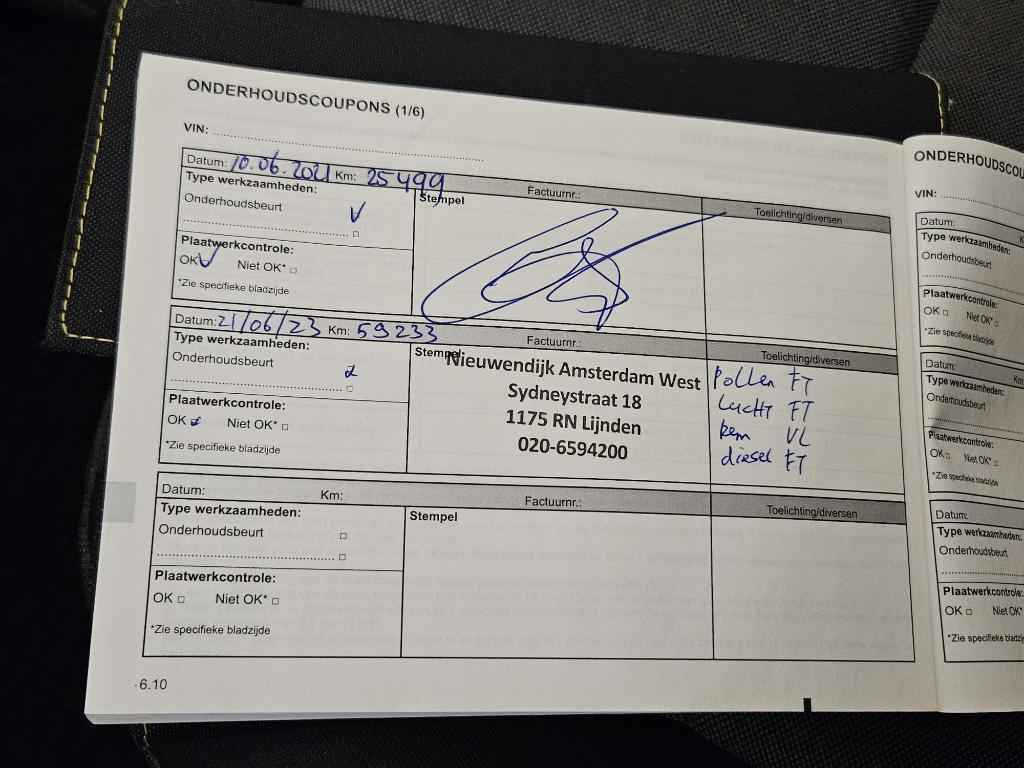 ONDERHOUDSCOUPONS (1/6)
VIN:
Datum: 10.06.2021 Km: 25499 Factuurnr.:
Type werkzaamheden: Stempel Toelichting/diversen
Onderhoudsbeurt
Plaatwerkcontrole:
OK Niet OK*
*Zie specifieke bladzijde
Datum: 21/06/23 Km: 59233 Factuurnr.:
Type werkzaamheden: Stempel Toelichting/diversen
Onderhoudsbeurt
Plaatwerkcontrole:
OK Niet OK*
*Zie specifieke bladzijde
Nieuwendijk Amsterdam West
Sydneystraat 18
1175 RN Lijnden
020-6594200
Pollen FT
Lucht FT
Rem VL
diesel FT
Datum: Km: Factuurnr.:
Type werkzaamheden: Stempel Toelichting/diversen
Onderhoudsbeurt
Plaatwerkcontrole:
OK Niet OK*
*Zie specifieke bladzijde
6.10
ONDERHOUDSCOU
VIN:
Datum: K
Type werkzaamheden:
Onderhoudsbeurt
Plaatwerkcontrole:
OK Niet OK*
*Zie specifieke bladzijde
Datum: Km
Type werkzaamheden:
Onderhoudsbeurt
Plaatwerkcontrole:
OK Niet OK*
*Zie specifieke bladzijde
Datum:
Type werkzaamheden:
Onderhoudsbeurt
Plaatwerkcontrole:
OK Niet OK*
*Zie specifieke bladzij